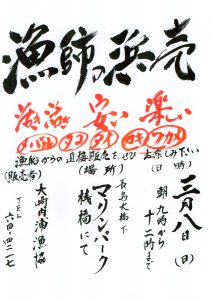 漁師の浜売
活き活き 安い 楽しい
メバル タコ タイ カキ フカメ
漁船からの直接販売を、ぜひお楽しみ下さい
(日時)
三月八日(日)
朝九時から
十二時まで
(場所)
長島大橋下
マリンパーク
桟橋にて
(販売者)
大崎内浦漁協
TEL
六・四-四二一七